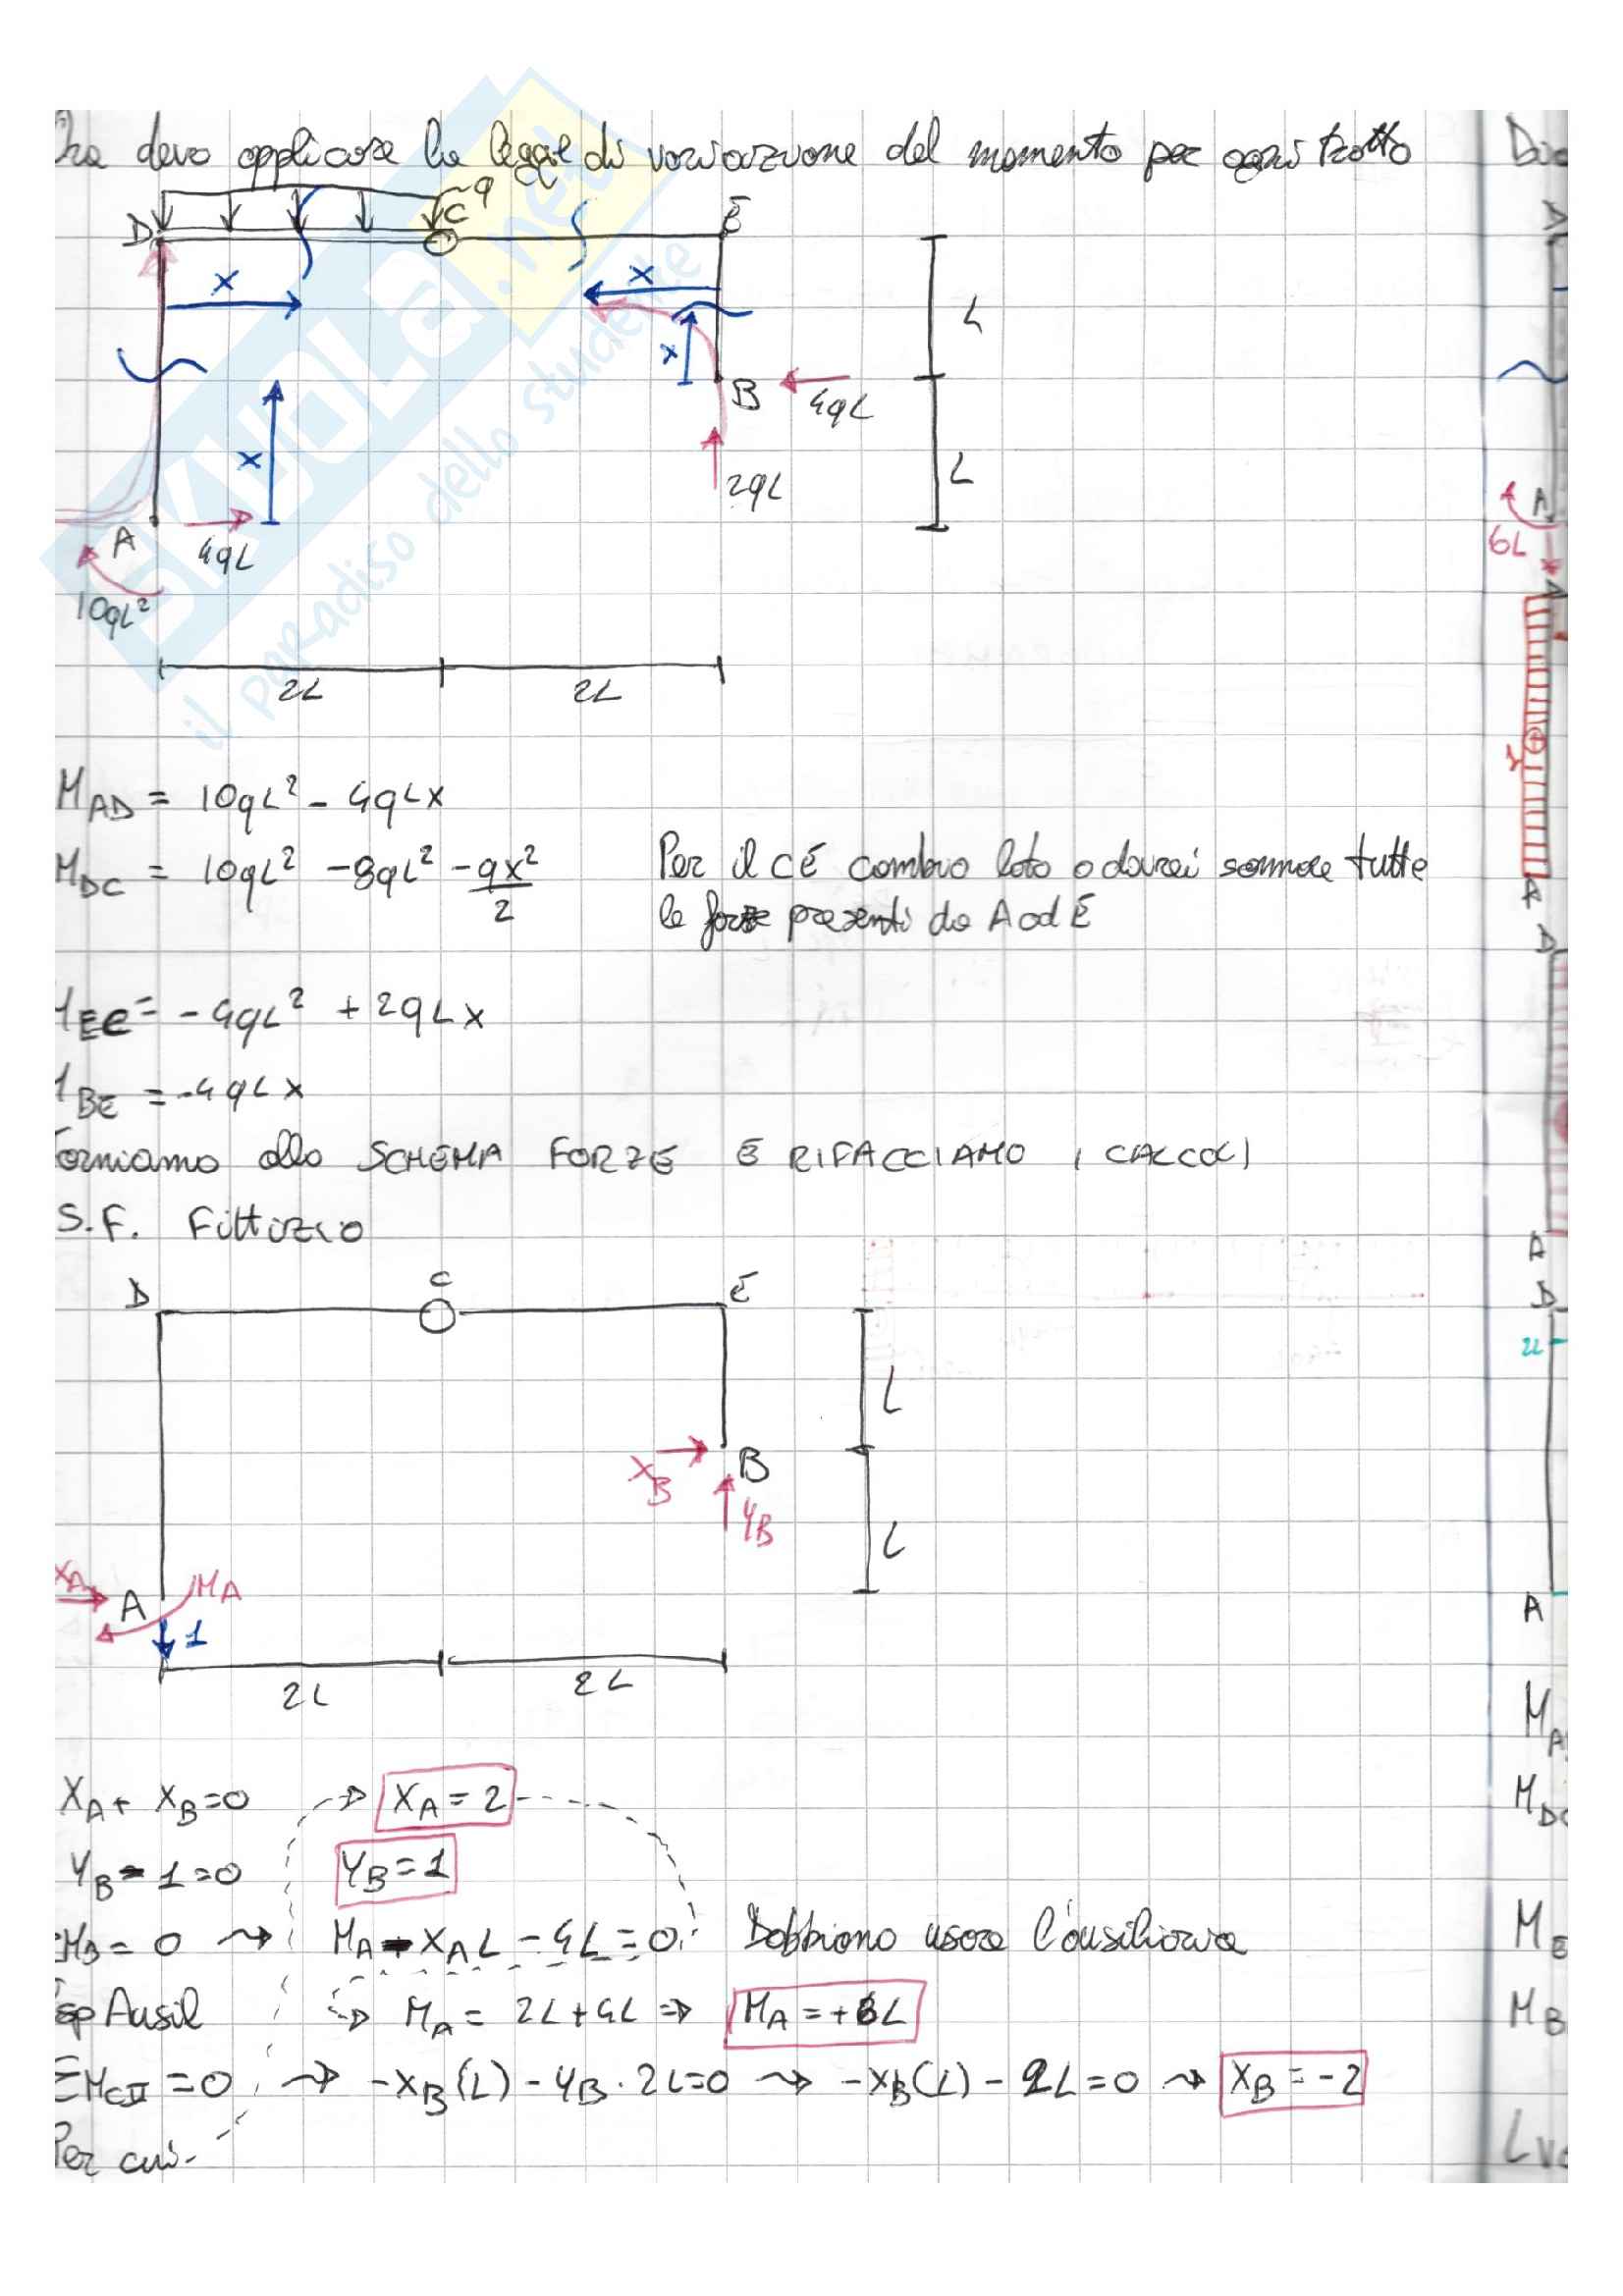 devo applicare la legge di variazione del momento per ogni tratto
q
D C E
x x
L
x
B 4qL
x L
2qL
A 4qL
10qL²
2L 2L
SKUOLA.net
il paradiso dello studente
M_AD = 10qL² - 4qLx
M_DC = 10qL² - 8qL² - qx²/2
Per il CE cambio lato o dovrei sommare tutte
le forze presenti da A ad E
M_EC = -4qL² + 2qLx
_BE = -4qLx
orniamo allo SCHEMA FORZE E RIFACCIAMO I CALCOLI
S.F. Fittizio
D C E
L
X_B B
Y_B
L
X_A A M_A
1
2L 2L
X_A + X_B = 0 → X_A = 2
Y_B - 1 = 0 Y_B = 1
M_B = 0 → M_A - X_A L - 4L = 0 Dobbiamo usare l'ausiliaria
Ausil → M_A = 2L + 4L ⇒ M_A = +6L
ΣM_CII = 0 → -X_B(L) - Y_B · 2L = 0 → -X_B(L) - 2L = 0 → X_B = -2
Per cui
D
A
6L
A
D
A
D
2L
A
M_A
M_D
M_E
M_B